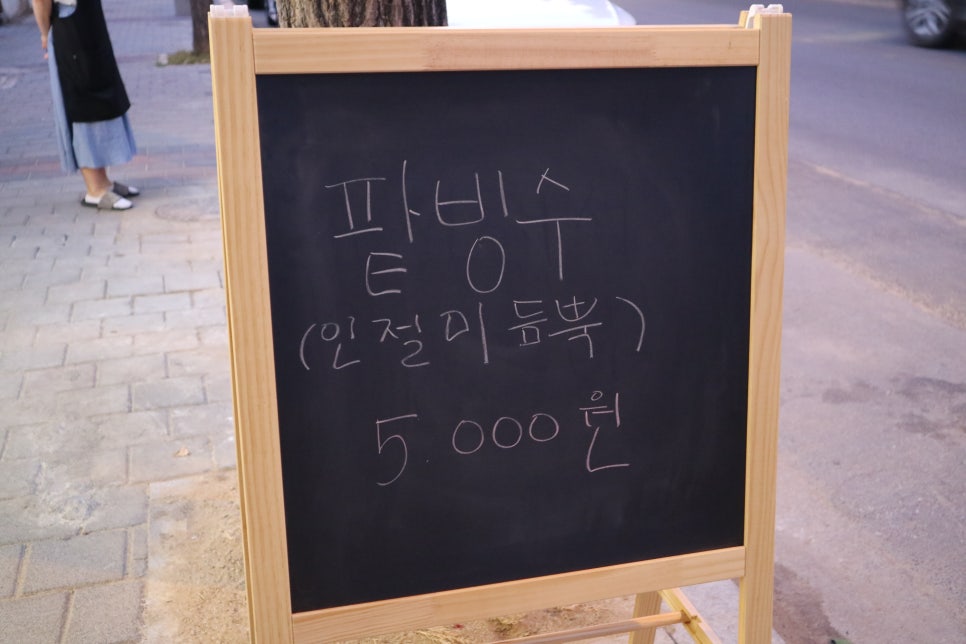 팥빙수
(인절미 듬뿍)
5.000원